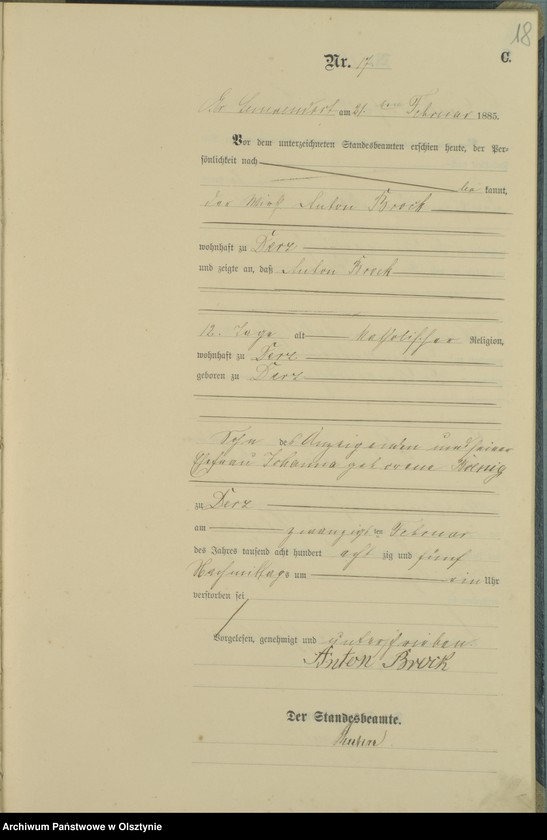 18
C.
Nr. 17
am 21 ten Februar 1885.
Vor dem unterzeichneten Standesbeamten erschien heute, der Per-
sönlichkeit nach
be kannt,
der Wirth Anton Brock
wohnhaft zu Derz
und zeigte an, daß Anton Brock
12 Tage alt katholischer Religion,
wohnhaft zu Derz
geboren zu Derz
Sohn des Anzeigenden und seiner
Ehefrau Johanna geborene Koenig
zu Derz
am zwanzigsten Februar
des Jahres tausend acht hundert acht zig und fünf
Nachmittags um ein Uhr
verstorben sei
Vorgelesen, genehmigt und unterschrieben
Anton Brock
Der Standesbeamte.
Archiwum Państwowe w Olsztynie